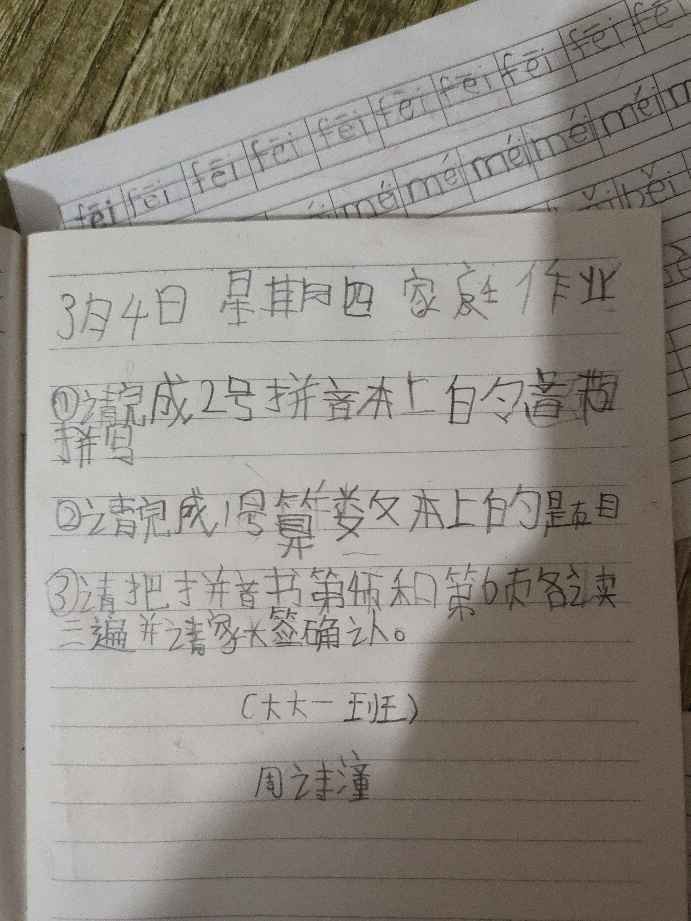 fēi fēi fēi fēi fēi fēi fēi fēi fēi fēi
méi méi méi méi méi
běi
3月4日 星期四 家庭作业
①请完成2号拼音本上的音节
拼写
②请完成1号算数本上的题目
③请把拼音书第4页和第6页各读
三遍并请家长签确认。
(大大一班)
周诗潼